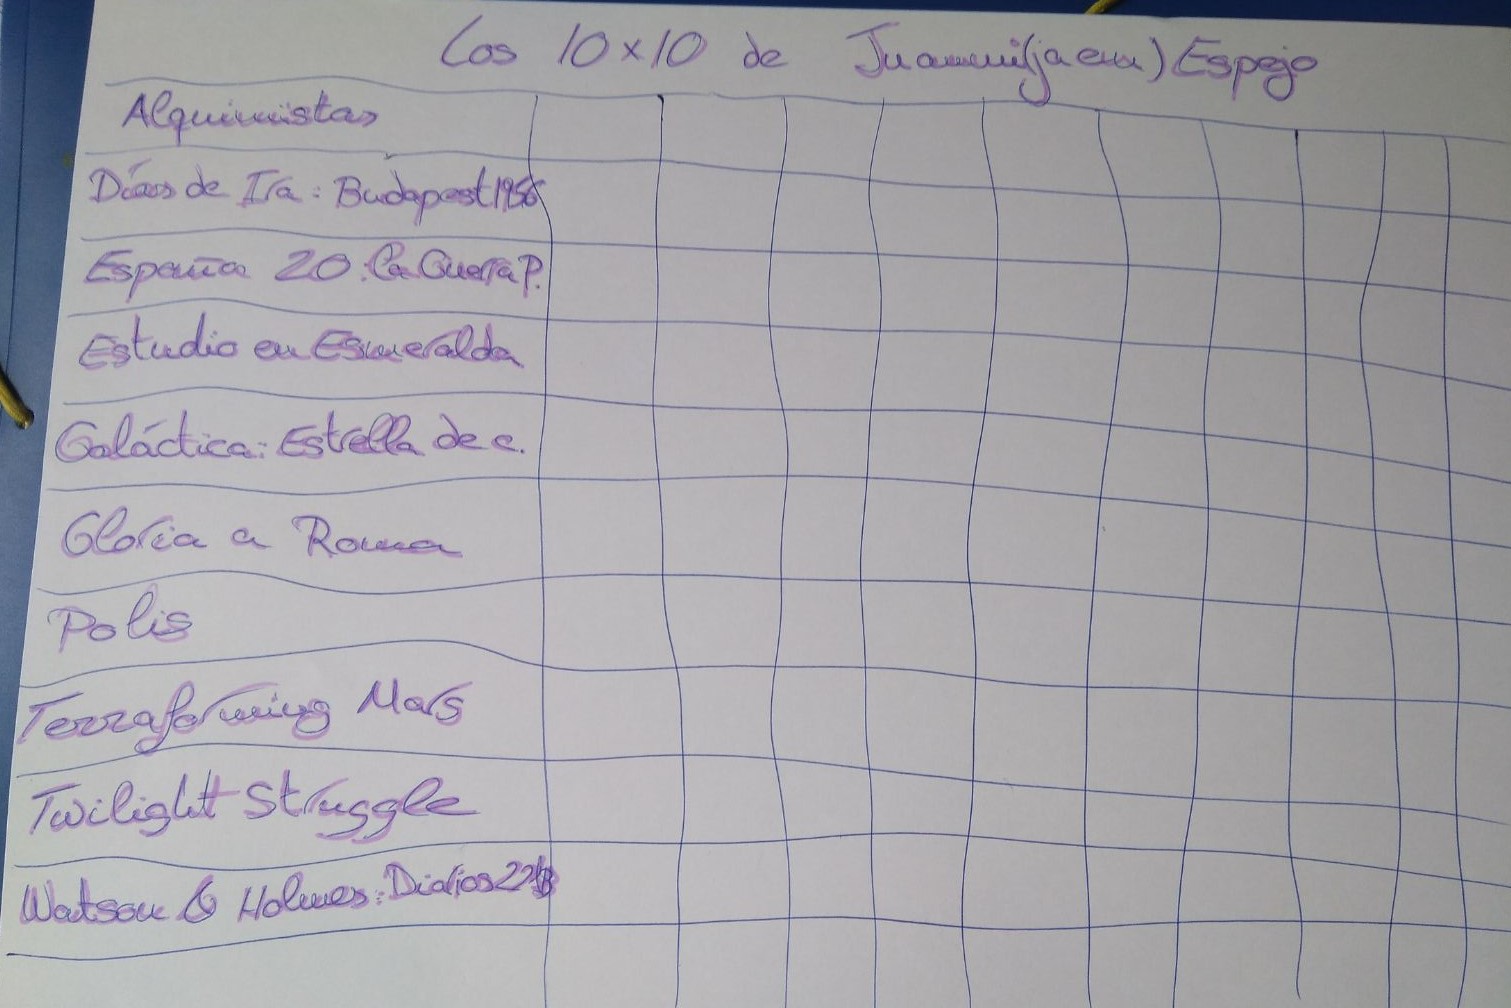 Los 10x10 de Juanmi(jaen) Espejo
Alquimistas
Días de Ira: Budapest 1956
España 20. La Guerra P.
Estudio en Esmeralda
Galáctica: Estrella de c.
Gloria a Roma
Polis
Terraforming Mars
Twilight Struggle
Watson & Holmes: Diarios 221B